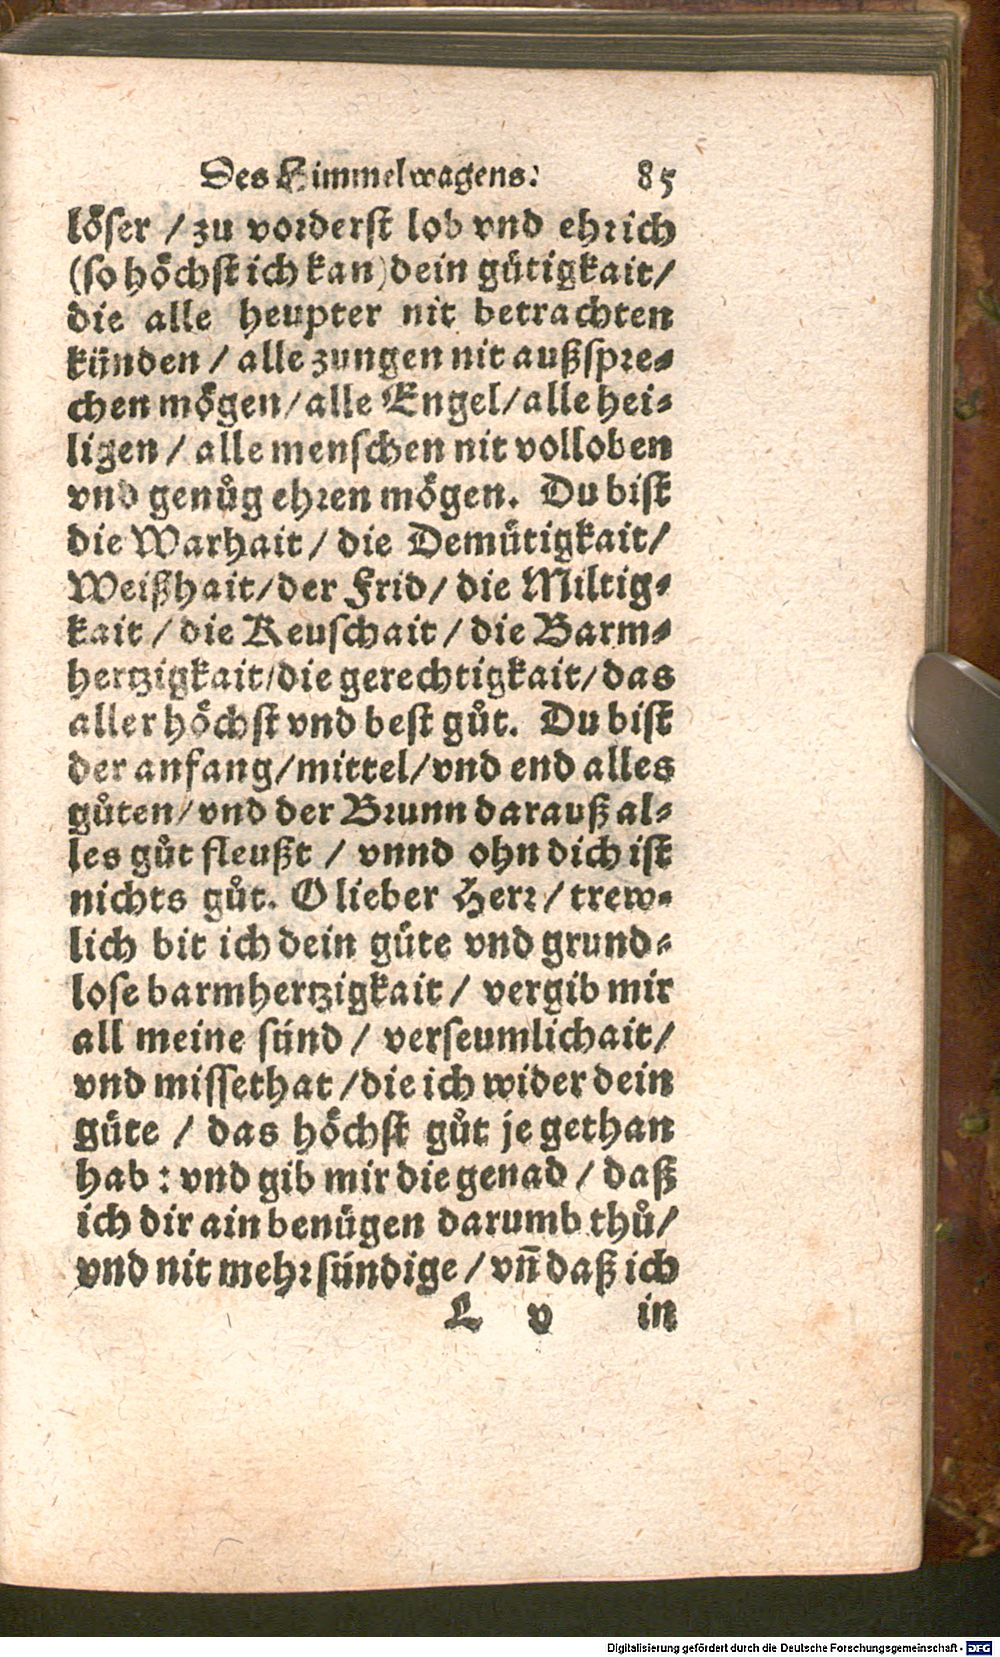 Des Himmelwagens. 85
löser / zu vorderst lob vnd ehr ich
(so höchst ich kan) dein gütigkait /
die alle heupter nit betrachten
künden / alle zungen nit außspre-
chen mögen / alle Engel / alle hei-
ligen / alle menschen nit volloben
vnd genůg ehren mögen. Du bist
die Warhait / die Demütigkait /
Weißhait / der Frid / die Miltig-
kait / die Keuschait / die Barm-
hertzigkait / die gerechtigkait / das
aller höchst vnd best gůt. Du bist
der anfang / mittel / vnd end alles
gůten / vnd der Brunn darauß al-
les gůt fleußt / vnnd ohn dich ist
nichts gůt. O lieber Herr / trew-
lich bit ich dein güte vnd grund-
lose barmhertzigkait / vergib mir
all meine sünd / verseumlichait /
vnd missethat / die ich wider dein
güte / das höchst gůt je gethan
hab : vnd gib mir die genad / daß
ich dir ain benügen darumb thů /
vnd nit mehr sündige / vn̄ daß ich
L v in
Digitalisierung gefördert durch die Deutsche Forschungsgemeinschaft - DFG